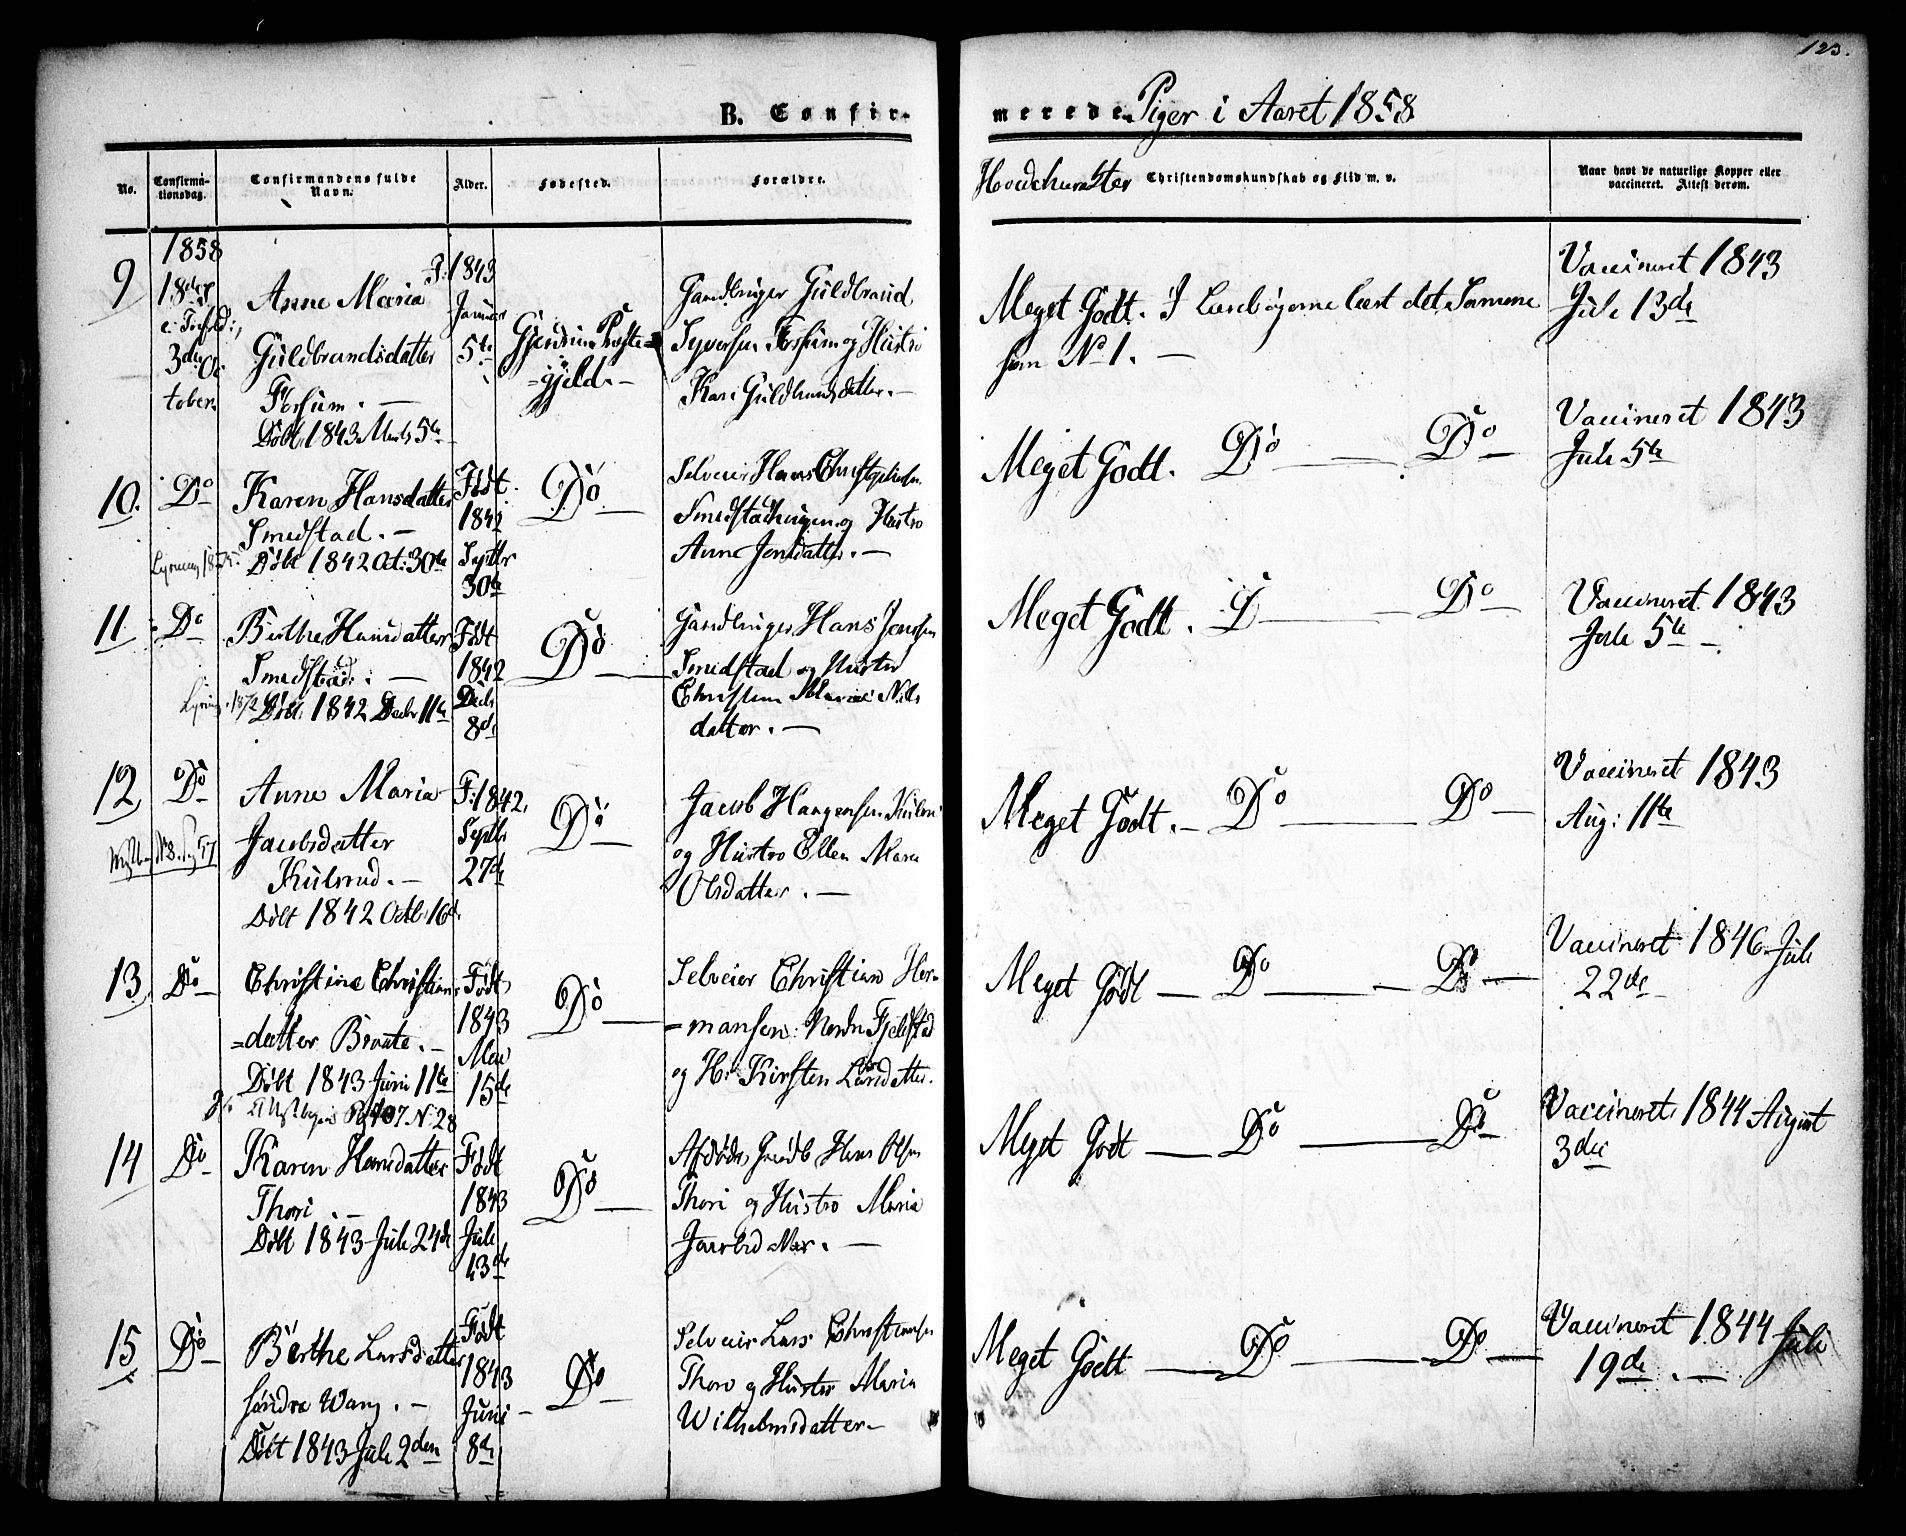 123.
B. Confirmerede Piger i Aaret 1858
No.
Confirmationsdag.
Confirmandens fulde Navn.
Alder.
Fødested.
Forældre.
Hovedcharakter Christendomskundskab og Flid m. v.
Naar havt de naturlige Kopper eller vaccineret. Attest derom.
9
1858
18de
3die Oc
tober.
Anne Maria
Guldbrandsdatter
Forsum. —
Døbt 1843 Marts 5te
F: 1843
Januar
5te
Gjerdrum Præste=
=gjeld. —
Gaardbruger Guldbrand
Syversen Forsum og Hustro
Kari Guldbrandsdatter. —
Meget Godt. I Lærebøgerne læst det Samme
som No 1. —
Vaccineret 1843
Juli 13de
10.
Do
Karen Hansdatter
Smedstad. —
Døbt 1842 Oct: 30te
Født
1842
Septbr
30te
Do —
Selveier Hans Christophersen
Smedstadengen og Hustro
Anne Jensdatter. —
Meget Godt. Do — Do —
Vaccineret 1843
Juli 5te
11.
Do
Berthe Hansdatter
Smedstad: —
Døbt 1842 Decbr 11te
Født
1842
Decbr
8de
Do —
Gaardbruger Hans Jensen
Smedstad og Hustro
Christine Marie Nils
datter. —
Meget Godt. D — Do —
Vaccineret 1843
Juli 5te —
12
Do
Anne Maria
Jacobsdatter
Kulsrud. —
Døbt 1842 Octb: 16de
F: 1842,
Septbr
27de
Do —
Jacob Haagensen Kulsrud
og Hustro Ellen Marie
Olsdatter. —
Meget Godt. — Do — Do —
Vaccineret 1843
Aug: 11te
13
Do —
Christine Christians
=datter Braate. —
Døbt 1843 Juni 11te
Pag 107. N: 28
Født
1843
Mai
15de
Do —
Selveier Christian Her=
=mansen: Nordre Fjeldstad
og H: Kirsten Larsdatter.
Meget Godt — Do — Do —
Vaccineret 1846 Juli
22de —
14
Do —
Karen Hansdatter
Thori. —
Døbt 1843 Juli 24de
Født
1843
Juli
13de
Do —
Afdøde Gaardb Hans Olsen
Thori og Hustro Maria
Jacobsdatter. —
Meget Godt — Do — Do —
Vaccineret 1844 August
3die
15
Do —
Berthe Larsdatter
søndre Wang. —
Døbt 1843 Juli 2den
Født
1843
Juni
8de
Do —
Selveier Lars Christiansen
Thori og Hustro Maria
Wilhelmsdatter —
Meget Godt — Do — Do —
Vaccineret 1844 Juli
19de. —